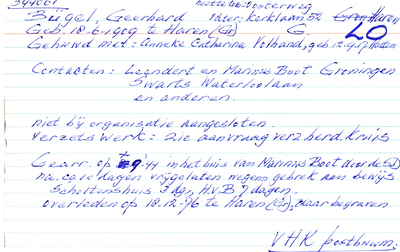 Bügel, Geerhard later: kerklaan 52 Haren
Geb. 18-6-1909 te Haren (Gr) G. LO
Gehuwd met: Anneke Catharina Volhand, geb.
Contacten: Leendert en Marinus Boot Groningen
Swarts Waterloolaan
en anderen.
niet bij organisatie aangesloten.
verzetswerk: zie aanvraag verz. herd. kruis
Gearr. op '44 in het huis van Marinus Boot door de SD
na 10 dagen vrijgelaten wegens gebrek aan bewijs
Scholtenshuis 3 dg, H.v.B. 7 dagen.
overleden op 18.12.'76 te Haren (Gr), daar begraven.
VHK posthuum.